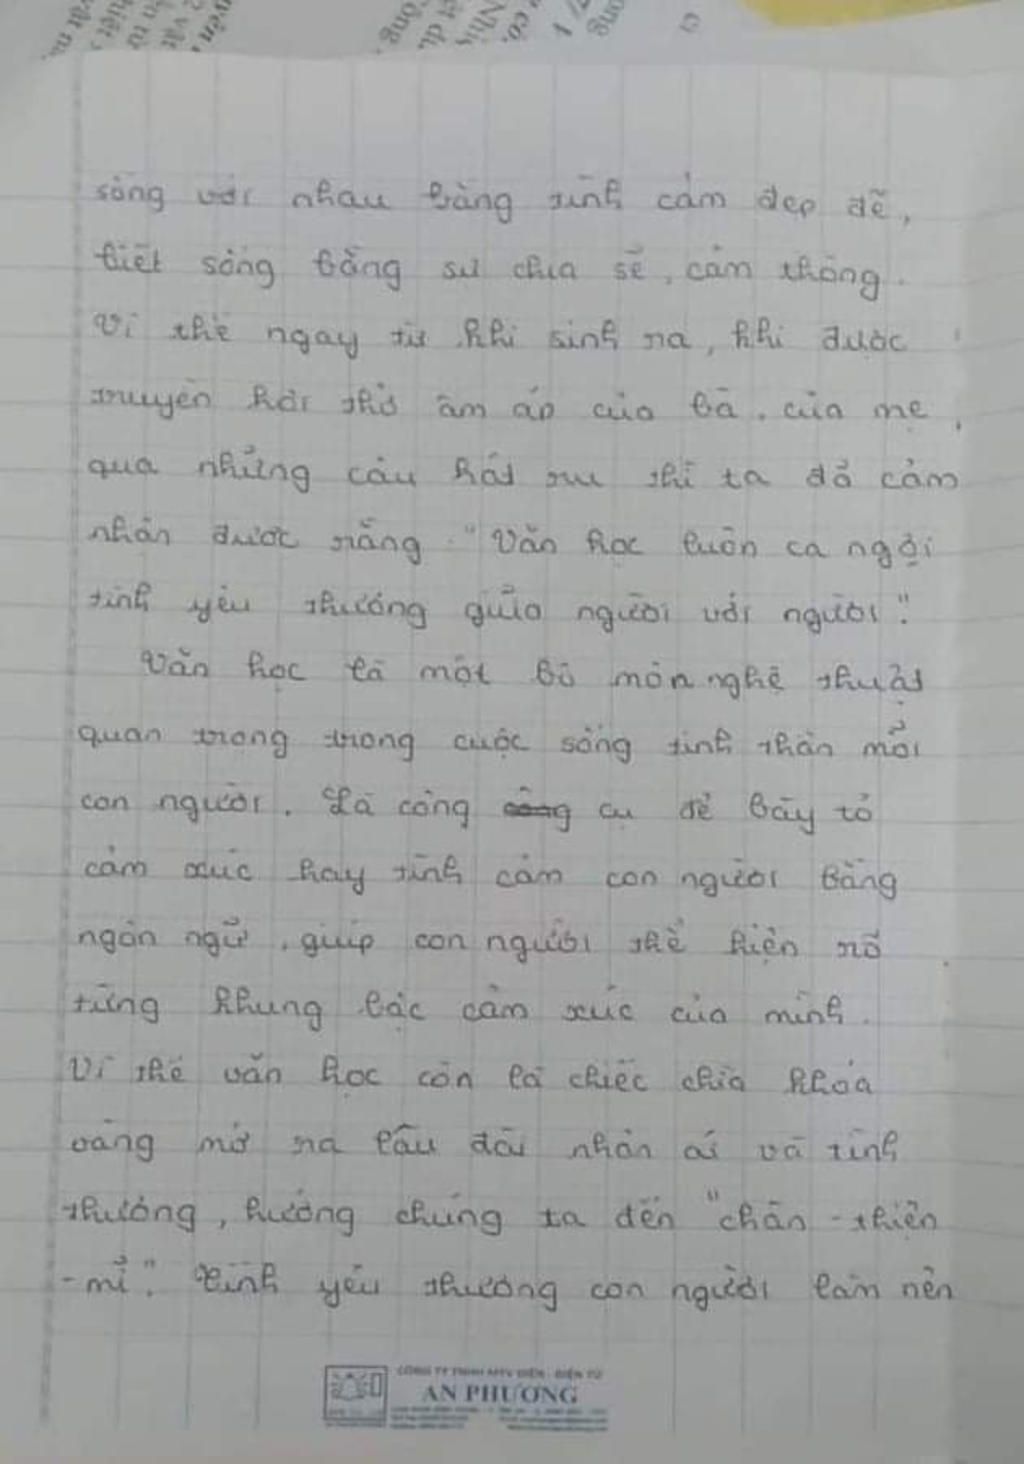 sống với nhau bằng tình cảm đẹp đẽ,
biết sống bằng sự chia sẽ, cảm thông.
Vì thế ngay từ khi sinh ra, khi được
truyền hơi thở ấm áp của bà, của mẹ,
qua những câu hát ru thì ta đã cảm
nhận được rằng "Văn học luôn ca ngợi
tình yêu thương giữa người với người".
Văn học là một bộ môn nghệ thuật
quan trọng trong cuộc sống tinh thần mỗi
con người. Là công cụ để bày tỏ
cảm xúc hay tình cảm con người bằng
ngôn ngữ, giúp con người thể hiện rõ
từng khung bậc cảm xúc của mình.
Vì thế văn học còn là chiếc chìa khóa
vàng mở ra lâu đài nhân ái và tình
thương, hướng chúng ta đến "chân - thiện
- mĩ". Tình yêu thương con người làm nên
CÔNG TY TNHH MTV ĐIỆN - ĐIỆN TỬ
AN PHƯƠNG